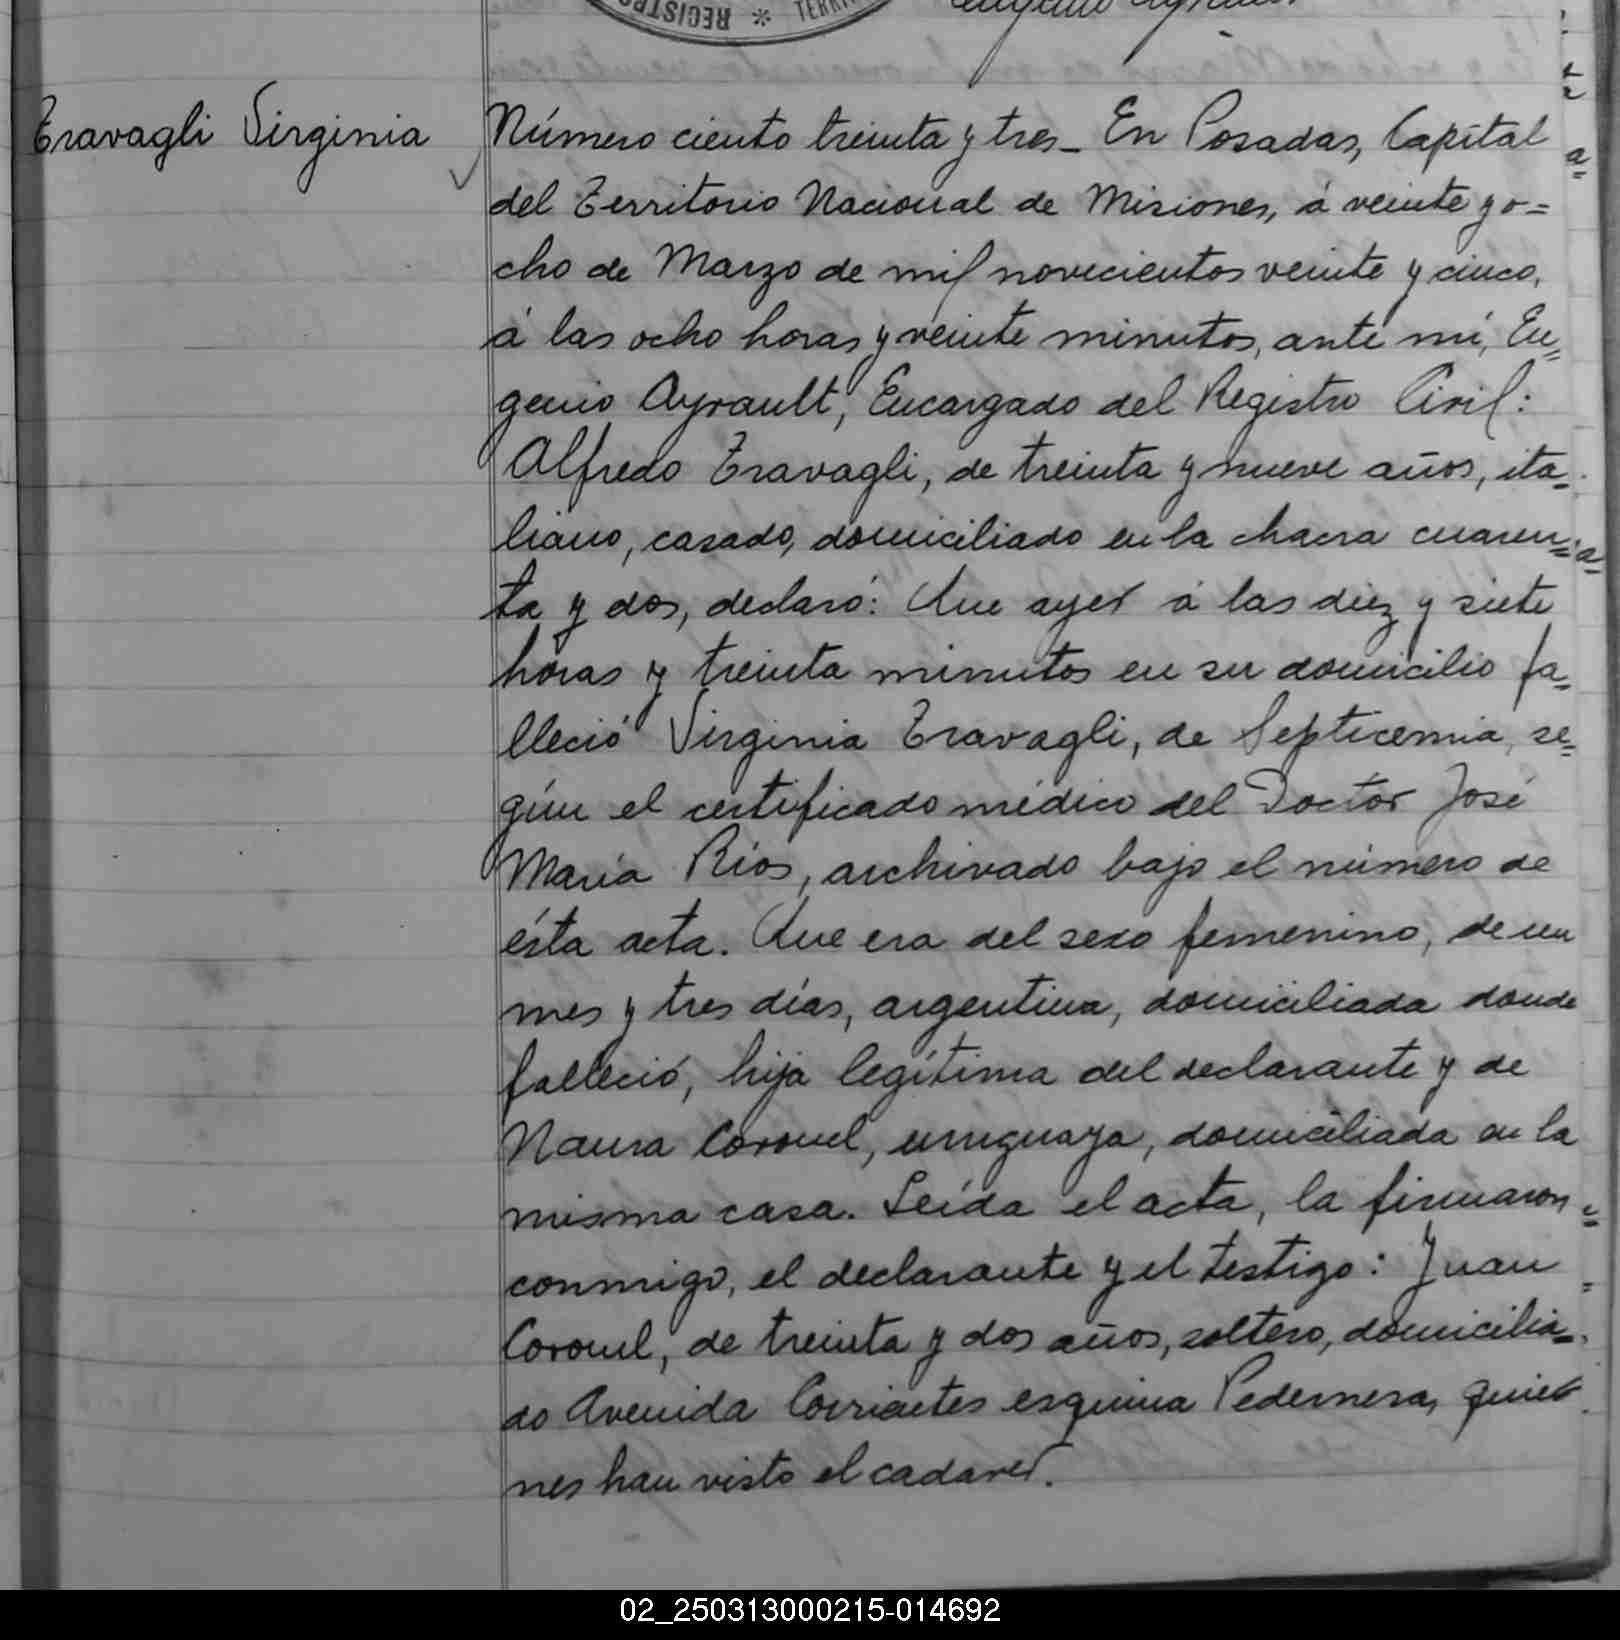 REGISTRO * TERRI
Eugenio Ayrault
Travagli Virginia
Número ciento treinta y tres_ En Posadas, Capital
del Territorio Nacional de Misiones, á veinte y o=
cho de Marzo de mil novecientos veinte y cinco,
á las ocho horas y veinte minutos, ante mí, Eu=
genio Ayrault, Encargado del Registro Civil:
Alfredo Travagli, de treinta y nueve años, ita=
liano, casado, domiciliado en la chacra cuaren=
ta y dos, declaró: Que ayer á las diez y siete
horas y treinta minutos en su domicilio fa=
lleció Virginia Travagli, de Septicemia, se=
gún el certificado médico del Doctor José
María Ríos, archivado bajo el número de
ésta acta. Que era del sexo femenino, de un
mes y tres días, argentina, domiciliada donde
falleció, hija legítima del declarante y de
Naura Coronel, uruguaya, domiciliada en la
misma casa. Leída el acta, la firmaron
conmigo, el declarante y el testigo: Juan
Coronel, de treinta y dos años, soltero, domicilia=
do Avenida Corrientes esquina Pedernera, quie=
nes han visto el cadaver.
02_250313000215-014692